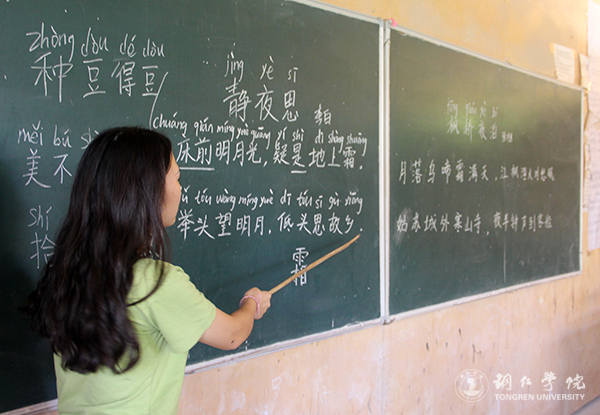 zhòng dòu dé dòu
种豆得豆
měi bú
美不
shí
拾
jìng yè sī
静夜思
李白
chuáng qián míng yuè guāng yí shì dì shàng shuāng
床前明月光,疑是地上霜。
tóu wàng míng yuè dī tóu sī gù xiāng
举头望明月,低头思故乡。
霜
枫桥夜泊
月落乌啼霜满天,江枫渔火对愁眠
姑苏城外寒山寺,夜半钟声到客船
铜仁学院
TONGREN UNIVERSITY